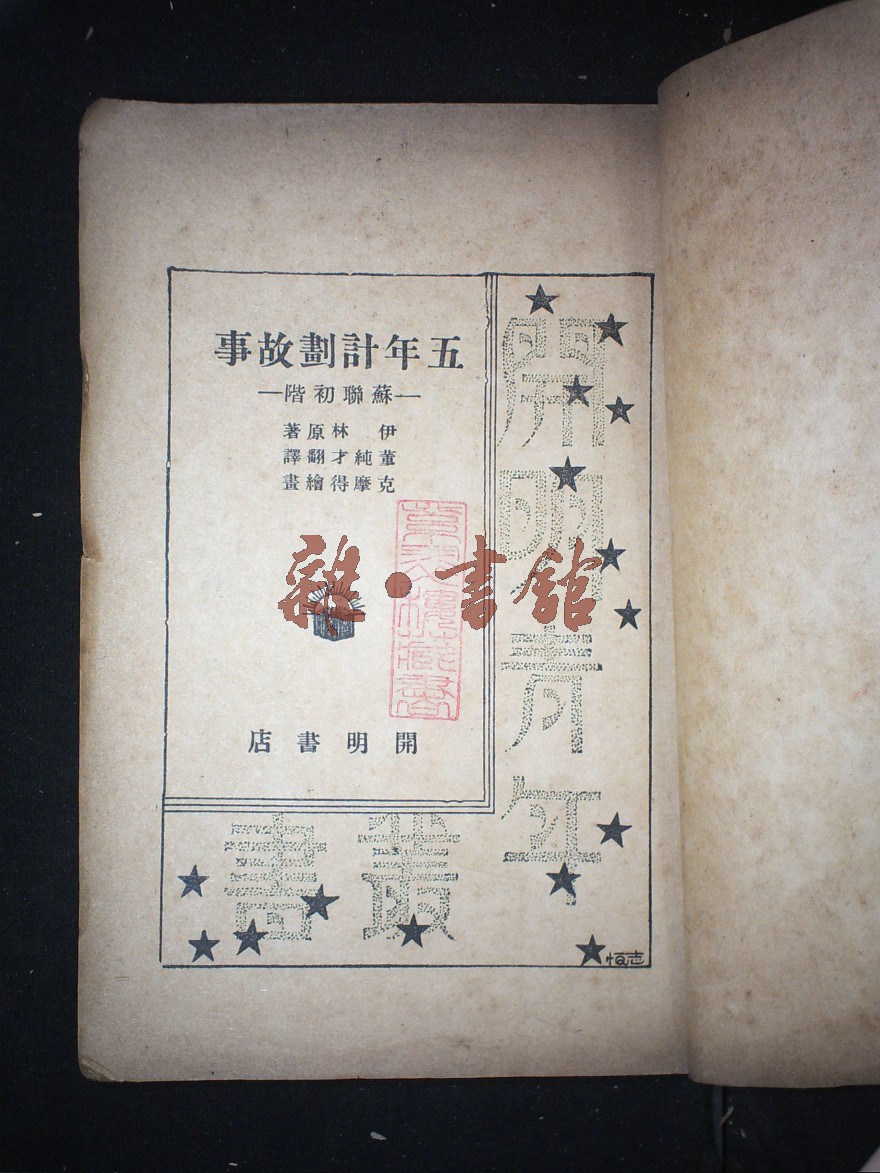 五年計劃故事
—蘇聯初階—
伊林原著
董純才翻譯
克摩得繪畫
開明書店
開明青年叢書
志恒
雜·書館